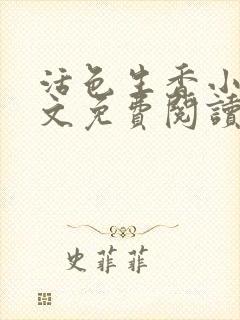 活色生香小
文免費閱讀
史菲菲